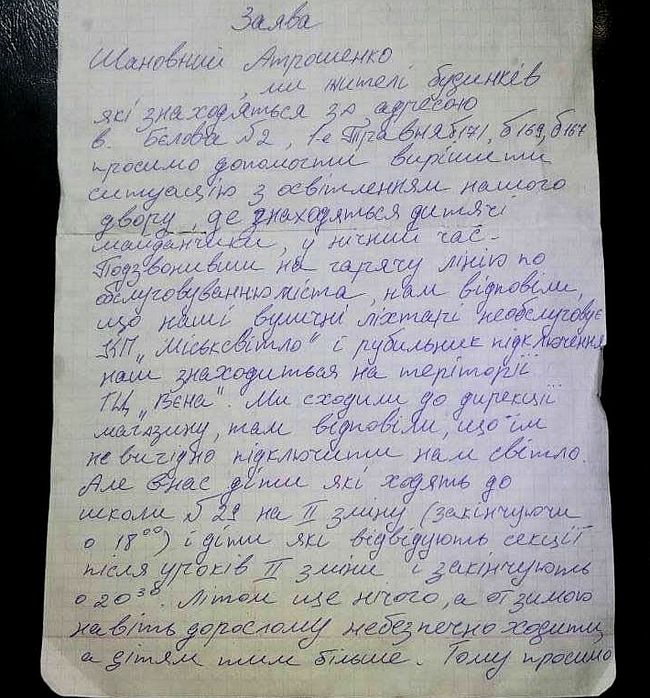 Заява
Шановний Атрошенко
, ми жителі будинків
які знаходяться за адресою
в. Бєлова №2, 1-е Травня б171, б169, б167
просимо допомогти вирішити
ситуацію з освітленням нашого
двору, де знаходяться дитячі
майданчики, у нічний час.
Подзвонивши на гарячу лінію по
обслуговуванню міста, нам відповіли,
що наші вуличні ліхтарі необслуговує
КП „Міськсвітло" і рубильник підключення
наш знаходиться на теріторії
ТЦ „Вєна". Ми сходили до дирекції
магазину, там відповіли, що їм
не вигідно підключити нам світло.
Але в нас діти які ходять до
школи №29 на II зміну (закінчуючи
о 18⁰⁰) і діти які відвідують секції
після уроків II зміни і закінчують
о 20³⁰. Літом ще нічого, а от зимою
навіть дорослому небезпечно ходити,
а дітям тим більше. Тому просимо